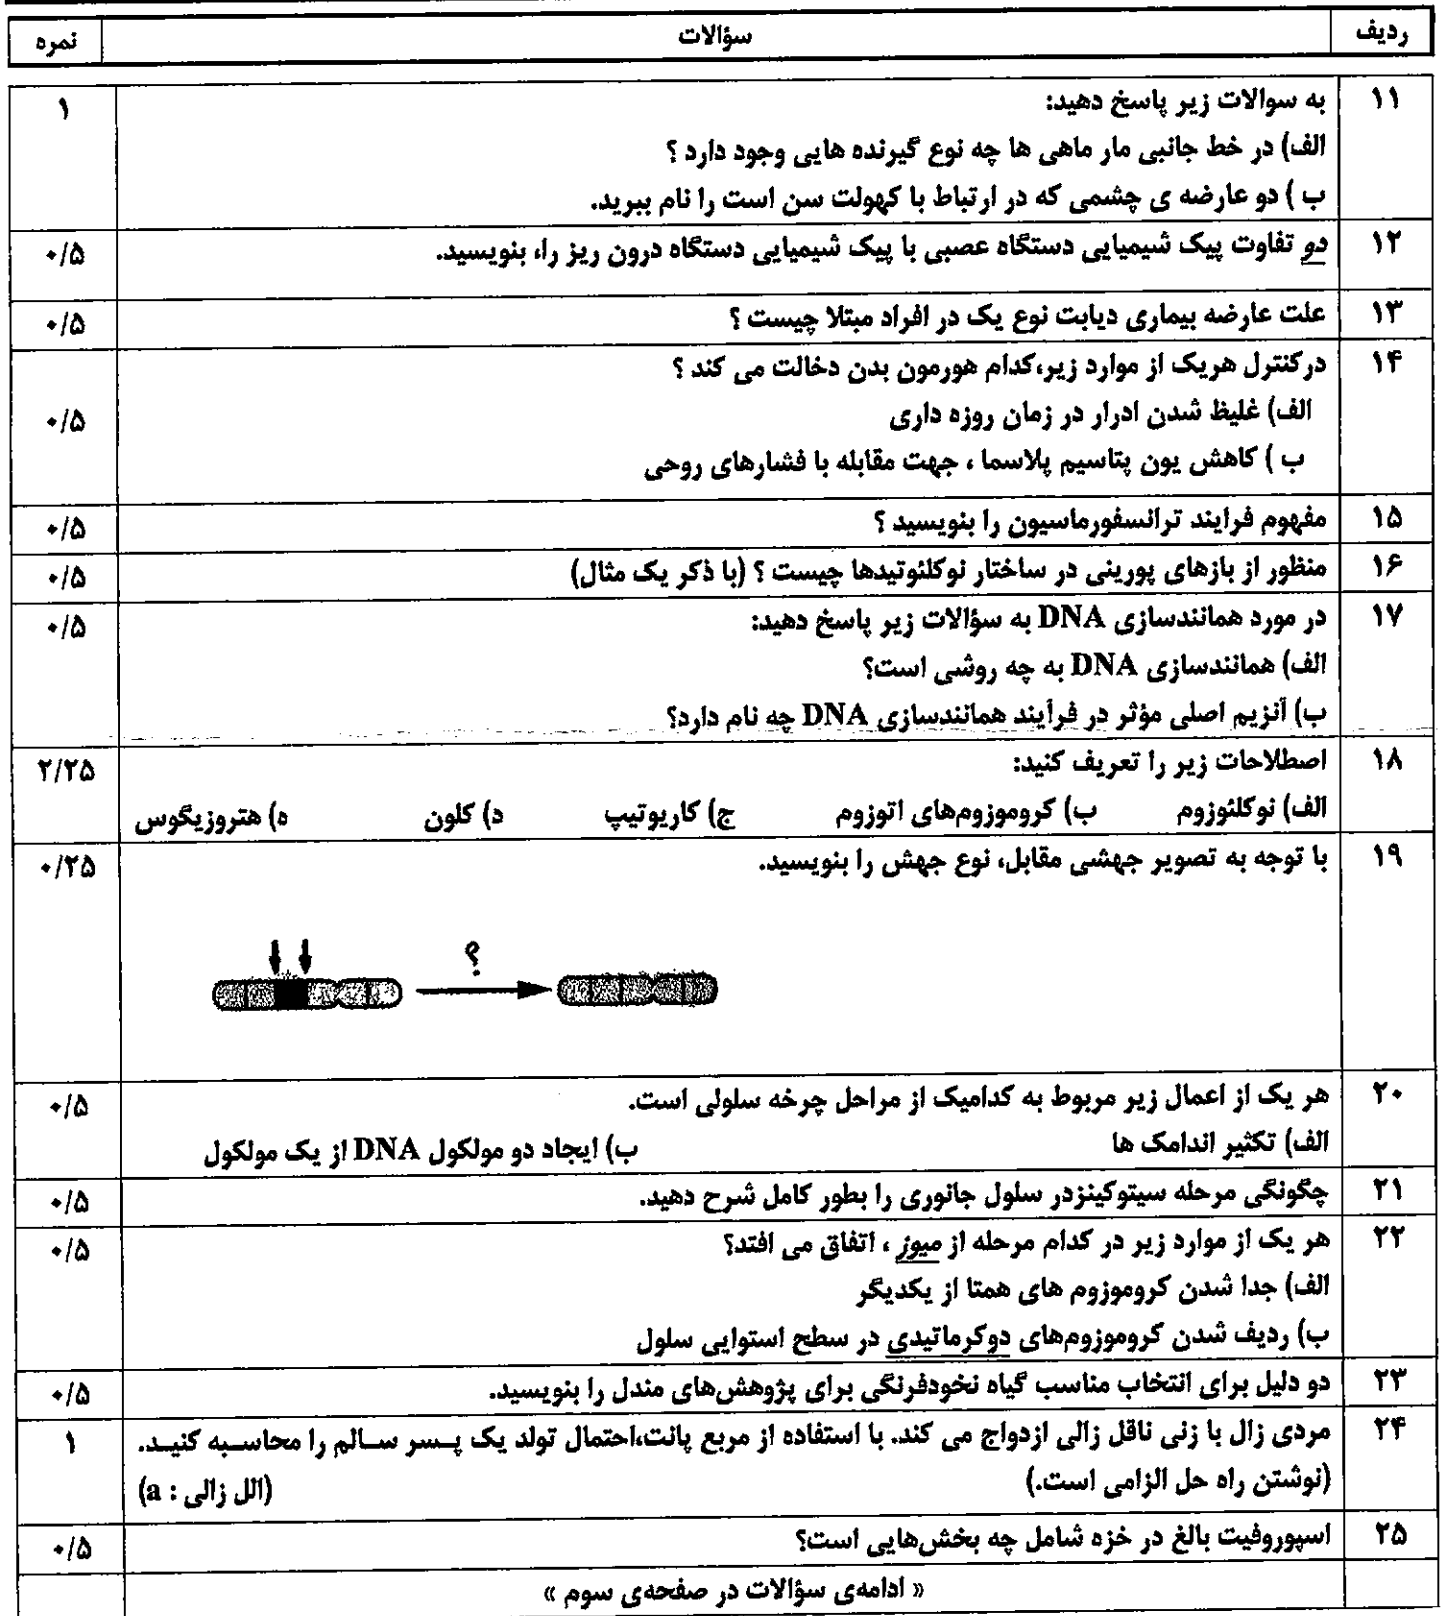 ردیف سؤالات نمره
۱۱ به سوالات زیر پاسخ دهید: ۱
الف) در خط جانبی مار ماهی ها چه نوع گیرنده هایی وجود دارد ؟
ب ) دو عارضه ی چشمی که در ارتباط با کهولت سن است را نام ببرید.
۱۲ دو تفاوت پیک شیمیایی دستگاه عصبی با پیک شیمیایی دستگاه درون ریز را، بنویسید. ۰/۵
۱۳ علت عارضه بیماری دیابت نوع یک در افراد مبتلا چیست ؟ ۰/۵
۱۴ درکنترل هریک از موارد زیر،کدام هورمون بدن دخالت می کند ؟
الف) غلیظ شدن ادرار در زمان روزه داری ۰/۵
ب ) کاهش یون پتاسیم پلاسما ، جهت مقابله با فشارهای روحی
۱۵ مفهوم فرایند ترانسفورماسیون را بنویسید ؟ ۰/۵
۱۶ منظور از بازهای پورینی در ساختار نوکلئوتیدها چیست ؟ (با ذکر یک مثال) ۰/۵
۱۷ در مورد همانندسازی DNA به سؤالات زیر پاسخ دهید: ۰/۵
الف) همانندسازی DNA به چه روشی است؟
ب) آنزیم اصلی مؤثر در فرآیند همانندسازی DNA چه نام دارد؟
۱۸ اصطلاحات زیر را تعریف کنید: ۲/۲۵
الف) نوکلئوزوم ب) کروموزوم‌های اتوزوم ج) کاریوتیپ د) کلون ه) هتروزیگوس
۱۹ با توجه به تصویر جهشی مقابل، نوع جهش را بنویسید. ۰/۲۵
؟
۲۰ هر یک از اعمال زیر مربوط به کدامیک از مراحل چرخه سلولی است. ۰/۵
الف) تکثیر اندامک ها ب) ایجاد دو مولکول DNA از یک مولکول
۲۱ چگونگی مرحله سیتوکینزدر سلول جانوری را بطور کامل شرح دهید. ۰/۵
۲۲ هر یک از موارد زیر در کدام مرحله از میوز ، اتفاق می افتد؟ ۰/۵
الف) جدا شدن کروموزوم های همتا از یکدیگر
ب) ردیف شدن کروموزوم‌های دوکرماتیدی در سطح استوایی سلول
۲۳ دو دلیل برای انتخاب مناسب گیاه نخودفرنگی برای پژوهش‌های مندل را بنویسید. ۰/۵
۲۴ مردی زال با زنی ناقل زالی ازدواج می کند. با استفاده از مربع پانت،احتمال تولد یک پسر سالم را محاسبه کنید. ۱
(نوشتن راه حل الزامی است.) (الل زالی : a)
۲۵ اسپوروفیت بالغ در خزه شامل چه بخش‌هایی است؟ ۰/۵
« ادامه‌ی سؤالات در صفحه‌ی سوم »